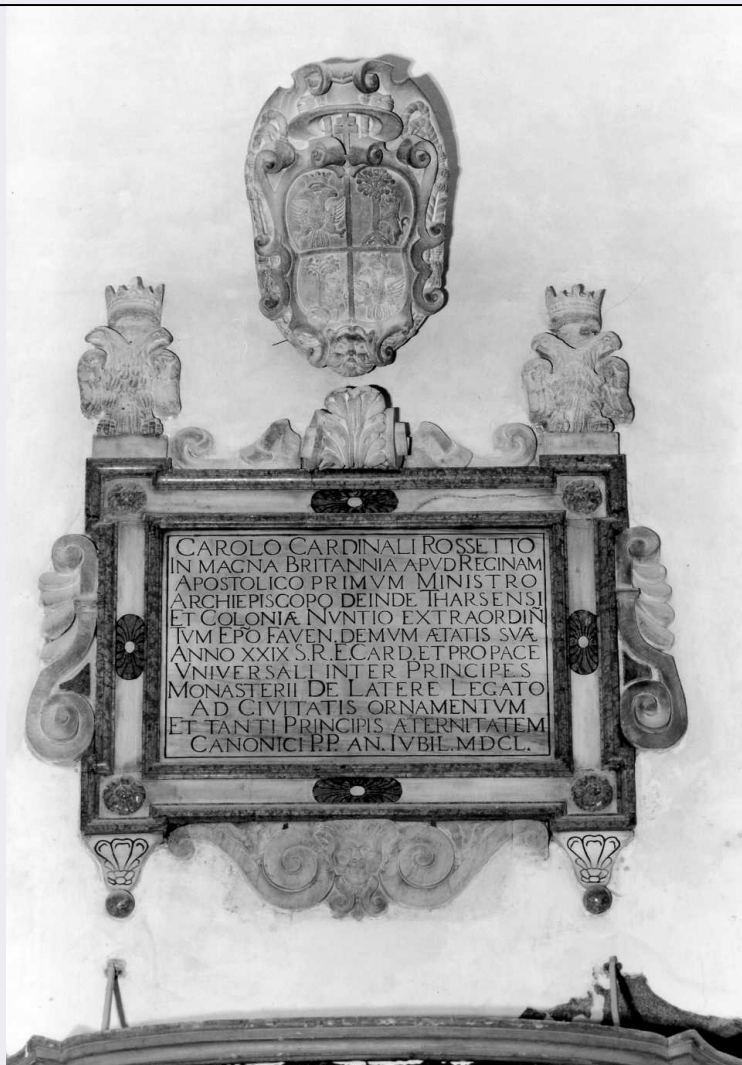 CAROLO CARDINALI ROSSETTO
IN MAGNA BRITANNIA APVD REGINAM
APOSTOLICO PRIMVM MINISTRO
ARCHIEPISCOPO DEINDE THARSENSI
ET COLONIÆ NVNTIO EXTRAORDIÑ
TVM EPO FAVEN. DEMVM ÆTATIS SVÆ
ANNO XXIX S.R.E.CARD. ET PRO PACE
VNIVERSALI INTER PRINCIPES
MONASTERII DE LATERE LEGATO
AD CIVITATIS ORNAMENTVM
ET TANTI PRINCIPIS ATERNITATEM
CANONICI P.P. AN. IVBIL. MDCL.